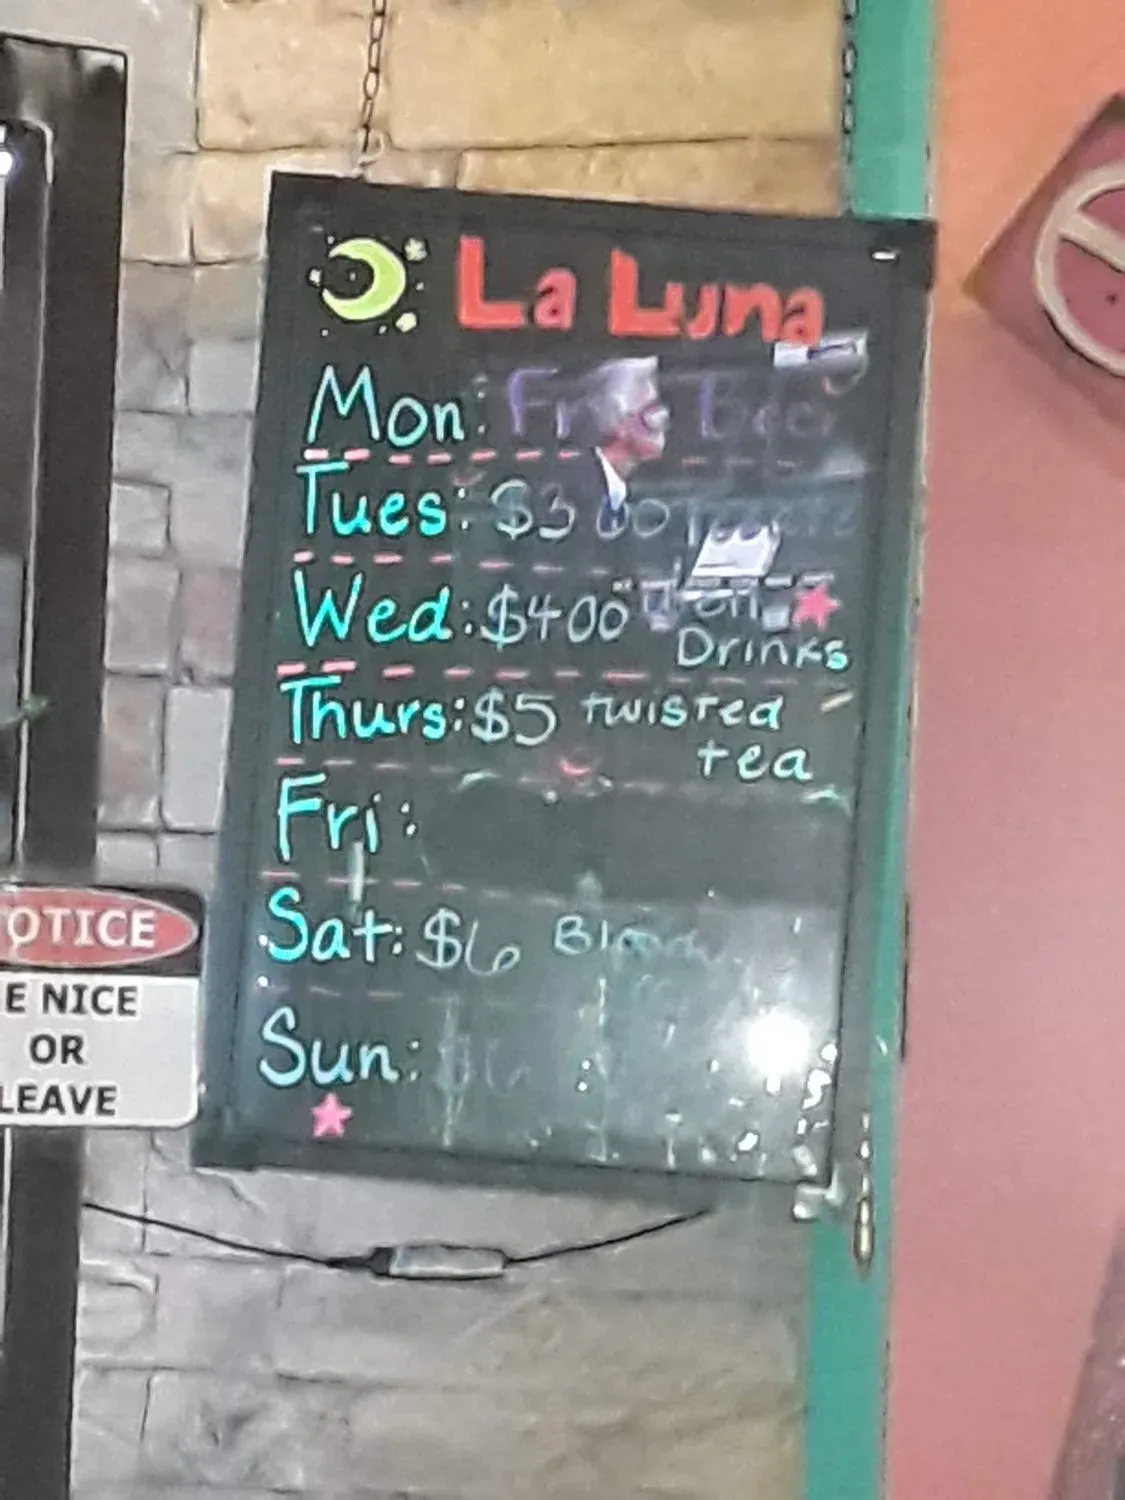 La Luna
Mon: Beer
Tues: $3
Wed: $400
Drinks
Thurs: $5 twisted
tea
Fri:
Sat: $6
Sun:
OTICE
E NICE
OR
LEAVE